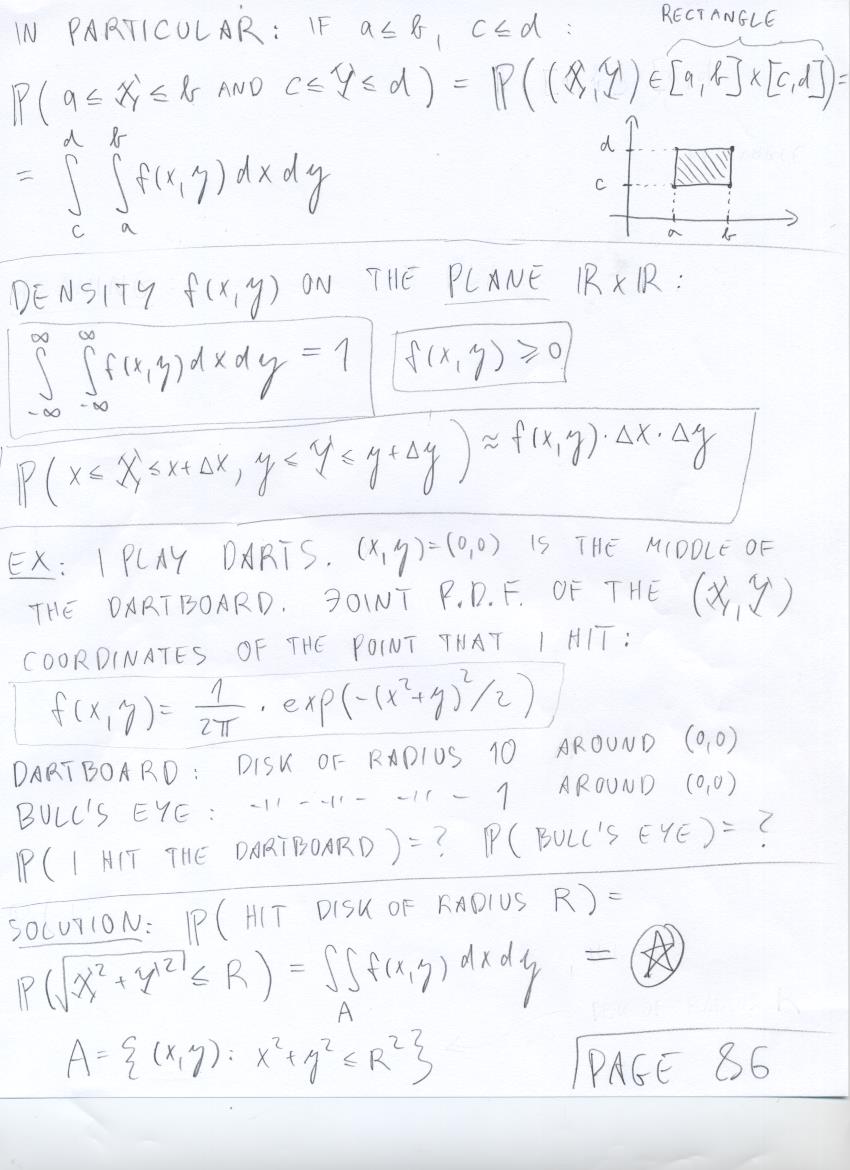 IN PARTICULAR: IF a≤b, c≤d :
RECTANGLE
ℙ(a≤X≤b AND c≤Y≤d) = ℙ((X,Y)∈[a,b]×[c,d])=
= ∫_c^d ∫_a^b f(x,y)dxdy
d
c
a b
DENSITY f(x,y) ON THE PLANE ℝ×ℝ:
∫_{-∞}^{∞} ∫_{-∞}^{∞} f(x,y)dxdy = 1 f(x,y)≥0
ℙ(x≤X≤x+Δx, y≤Y≤y+Δy) ≈ f(x,y)·Δx·Δy
EX: I PLAY DARTS. (x,y)=(0,0) IS THE MIDDLE OF
THE DARTBOARD. JOINT P.D.F. OF THE (X,Y)
COORDINATES OF THE POINT THAT I HIT:
f(x,y)= 1/2π · exp(-(x²+y)²/2)
DARTBOARD: DISK OF RADIUS 10 AROUND (0,0)
BULL'S EYE: -"- -"- -"- 1 AROUND (0,0)
ℙ(I HIT THE DARTBOARD)=? ℙ(BULL'S EYE)=?
SOLUTION: ℙ(HIT DISK OF RADIUS R)=
ℙ(√(X²+Y²) ≤ R) = ∬_A f(x,y)dxdy = ☆
A={(x,y): x²+y²≤R²}
PAGE 86